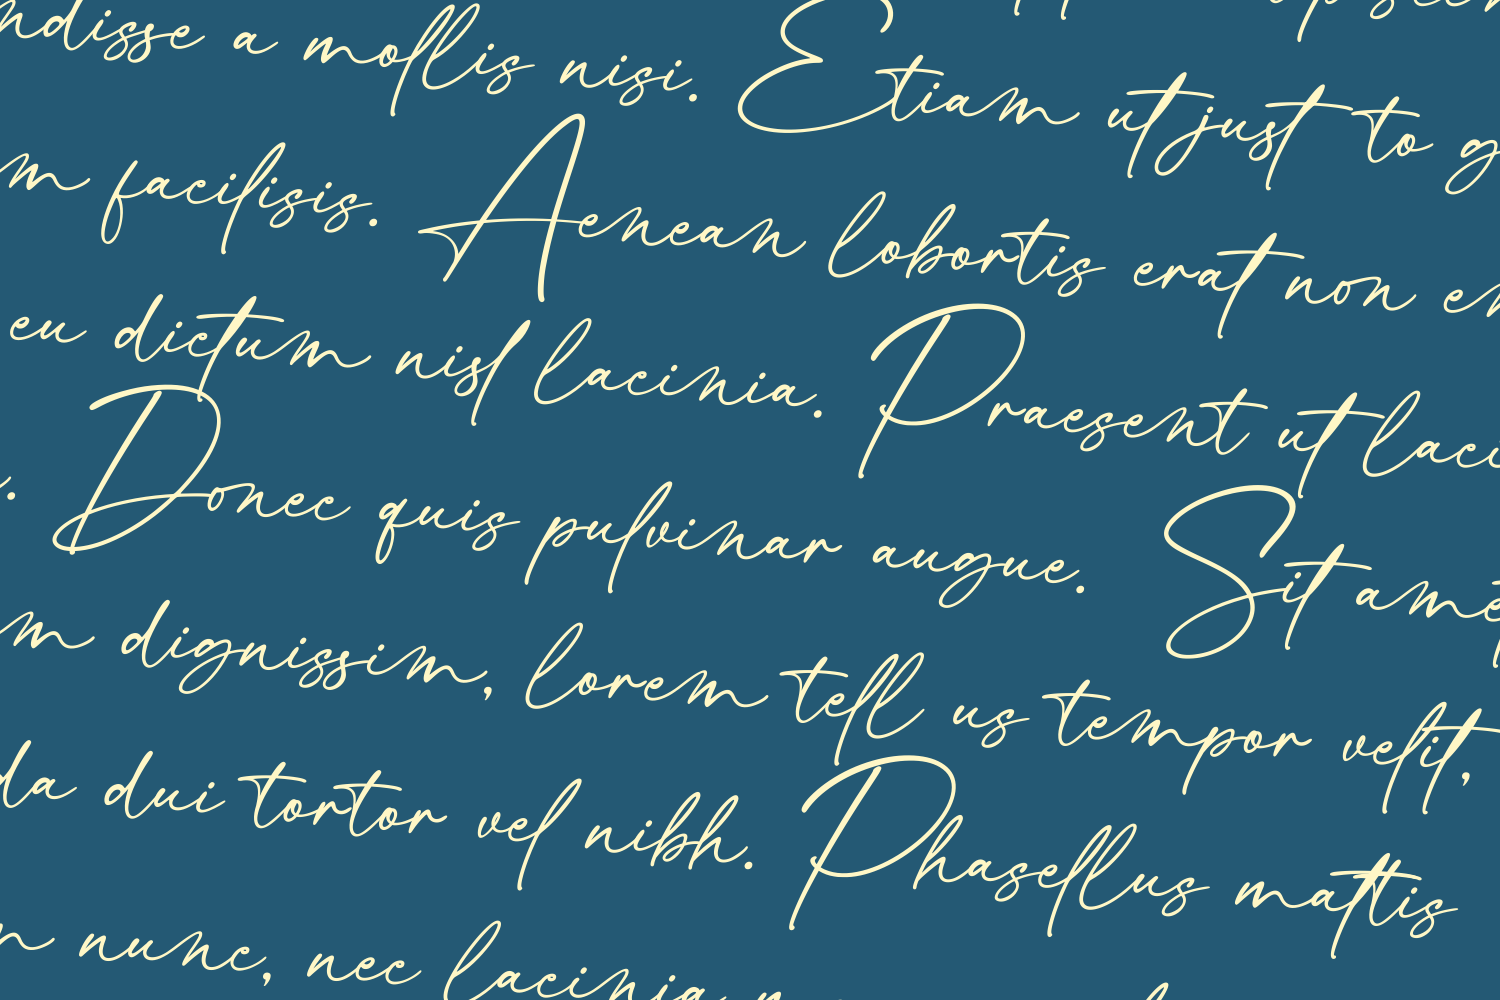 ndisse a mollis nisi. Etiam ut just to g
m facilisis. Aenean lobortis erat non
eu dictum nisl lacinia. Praesent ut laci
. Donec quis pulvinar augue. Sit ame
m dignissim, lorem tell us tempor velit,
da dui tortor vel nibh. Phasellus mattis
n nunc, nec lacinia